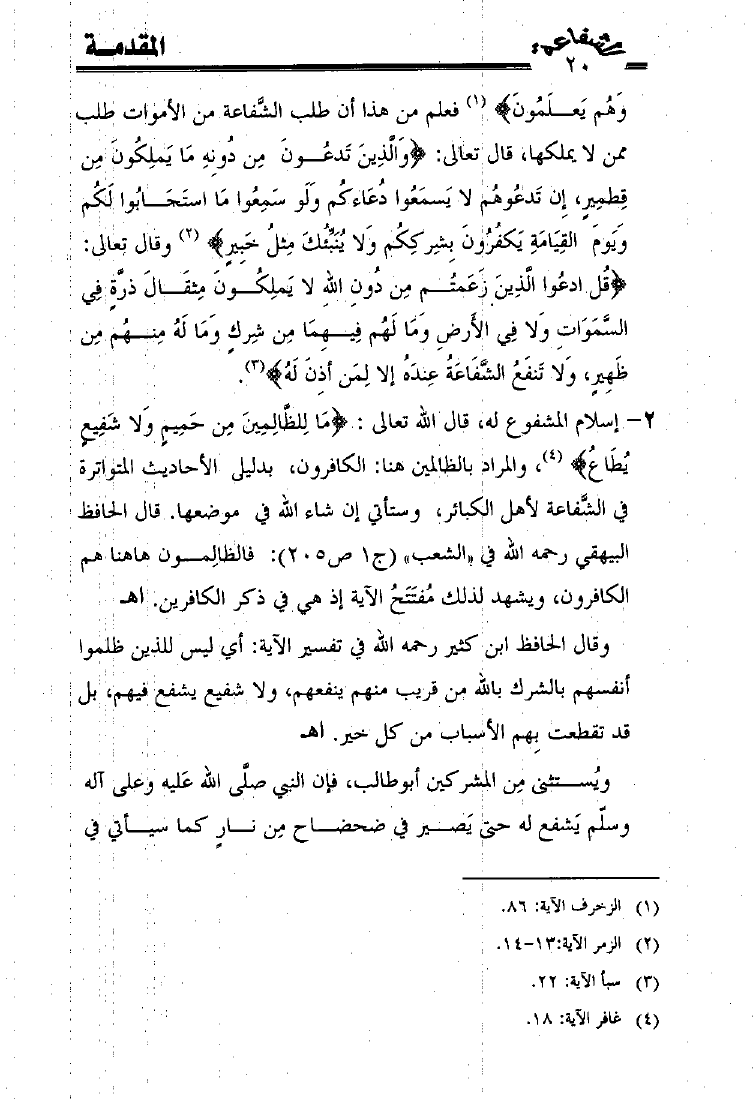 المقدمــة
الشفاعة
٢٠
وَهُم يَعــلَمُونَ﴾ (١) فعلم من هذا أن طلب الشَّفاعة من الأموات طلب
ممن لا يملكها، قال تعالى: ﴿وَالَّذِينَ تَدعُــونَ مِن دُونِهِ مَا يَملِكُونَ مِن
قِطمِيرٍ، إن تَدعُوهُم لا يَسمَعُوا دُعَاءكُم وَلَو سَمِعُوا مَا استَجَابُوا لَكُم
وَيَومَ القِيَامَةِ يَكفُرُونَ بِشِركِكُم وَلا يُنَبِّئُكَ مِثلُ خَبِيرٍ﴾ (٢) وقال تعالى:
﴿قُل ادعُوا الَّذِينَ زَعَمتُــم مِن دُونِ اللهِ لا يَملِكُــونَ مِثقَـالَ ذرَّةٍ فِي
السَّمَوَات وَلا فِي الأَرضِ وَمَا لَهُم فِيــهِمَا مِن شِركٍ وَمَا لَهُ مِنــهُم مِن
ظَهِيرٍ، وَلا تَنفَعُ الشَّفَاعَةُ عِندَهُ إلا لِمَن أذِنَ لَهُ﴾(٣).
٢– إسلام المشفوع له، قال الله تعالى : ﴿مَا لِلظَّالِمِينَ مِن حَمِيمٍ وَلا شَفِيعٍ
يُطَاعُ﴾ (٤)، والمراد بالظالمين هنا: الكافرون، بدليلى الأحاديث المتواترة
في الشَّفاعة لأهل الكبائر، وستأتي إن شاء الله في موضعها. قال الحافظ
البيهقي رحمه الله في «الشعب» (ج١ ص٢٠٥): فالظالِمــون هاهنا هم
الكافرون، ويشهد لذلك مُفتَتَحُ الآية إذ هي في ذكر الكافرين. اهـ
وقال الحافظ ابن كثير رحمه الله في تفسير الآية: أي ليس للذين ظلموا
أنفسهم بالشرك بالله من قريب منهم ينفعهم، ولا شفيع يشفع فيهم، بل
قد تقطعت بِهم الأسباب من كل خير. اهـ
ويُســتثنى مِن المشركين أبوطالب، فإن النبي صلَّى الله عَليه وعلى آله
وسلَّم يَشفع له حتى يَصــير في ضحضـاح مِن نــارٍ كما سيــأتي في
(١) الزخرف الآية: ٨٦.
(٢) الزمر الآية:١٣-١٤.
(٣) سبأ الآية: ٢٢.
(٤) غافر الآية: ١٨.